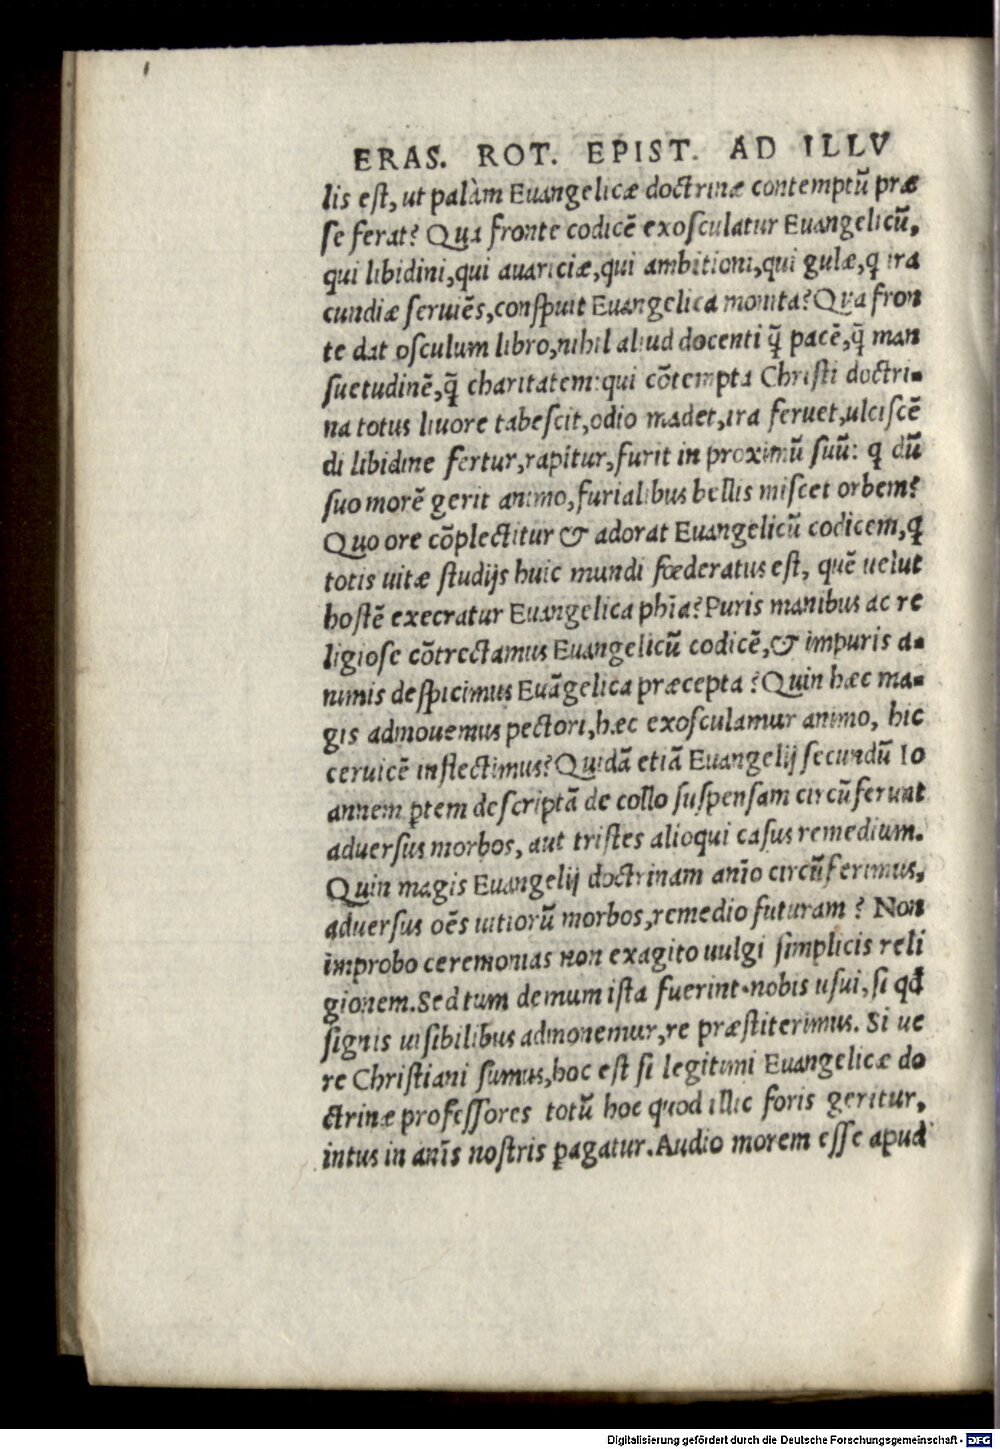 ERAS. ROT. EPIST. AD ILLV
lis est, ut palàm Euangelicæ doctrinæ contemptũ præ
se ferat? Qua fronte codicẽ exosculatur Euangelicũ,
qui libidini, qui auariciæ, qui ambitioni, qui gulæ, ꝗ ira
cundiæ seruiẽs, conspuit Euangelica monita? Qua fron
te dat osculum libro, nihil aliud docenti ꝗ̃ pacẽ, ꝗ̃ man
suetudinẽ, ꝗ̃ charitatem: qui cõtempta Christi doctri-
na totus liuore tabescit, odio madet, ira feruet, ulciscẽ
di libidine fertur, rapitur, furit in proximũ suũ: ꝗ dũ
suo morẽ gerit animo, furialibus bellis miscet orbem?
Quo ore cõplectitur & adorat Euangelicũ codicem, ꝗ
totis uitæ studijs huic mundi fœderatus est, quẽ uelut
hostẽ execratur Euangelica phĩa? Puris manibus ac re
ligiose cõtrectamus Euangelicũ codicẽ, & impuris a-
nimis despicimus Euãgelica præcepta? Quin hæc ma-
gis admouemus pectori, hæc exosculamur animo, hic
ceruicẽ inflectimus? Quidã etiã Euangelij secundũ Io
annem ꝑtem descriptã de collo suspensam circũferunt
aduersus morbos, aut tristes alioqui casus remedium.
Quin magis Euangelij doctrinam anĩo circũferimus,
aduersus oẽs uitiorũ morbos, remedio futuram? Non
improbo ceremonias non exagito uulgi simplicis reli
gionem. Sed tum demum ista fuerint nobis usui, si qđ
signis uisibilibus admonemur, re præstiterimus. Si ue
re Christiani sumus, hoc est si legitimi Euangelicæ do
ctrinæ professores totũ hoc quod illic foris geritur,
intus in anĩs nostris ꝑagatur. Audio morem esse apud
Digitalisierung gefördert durch die Deutsche Forschungsgemeinschaft - DFG